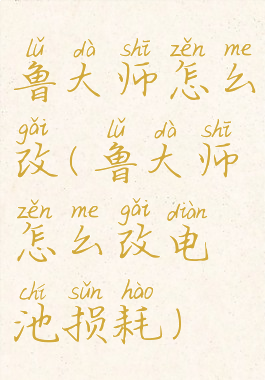 lǔ dà shī zěn me
鲁大师怎么
gǎi lǔ dà shī
改(鲁大师
zěn me gǎi diàn
怎么改电
chí sǔn hào
池损耗)